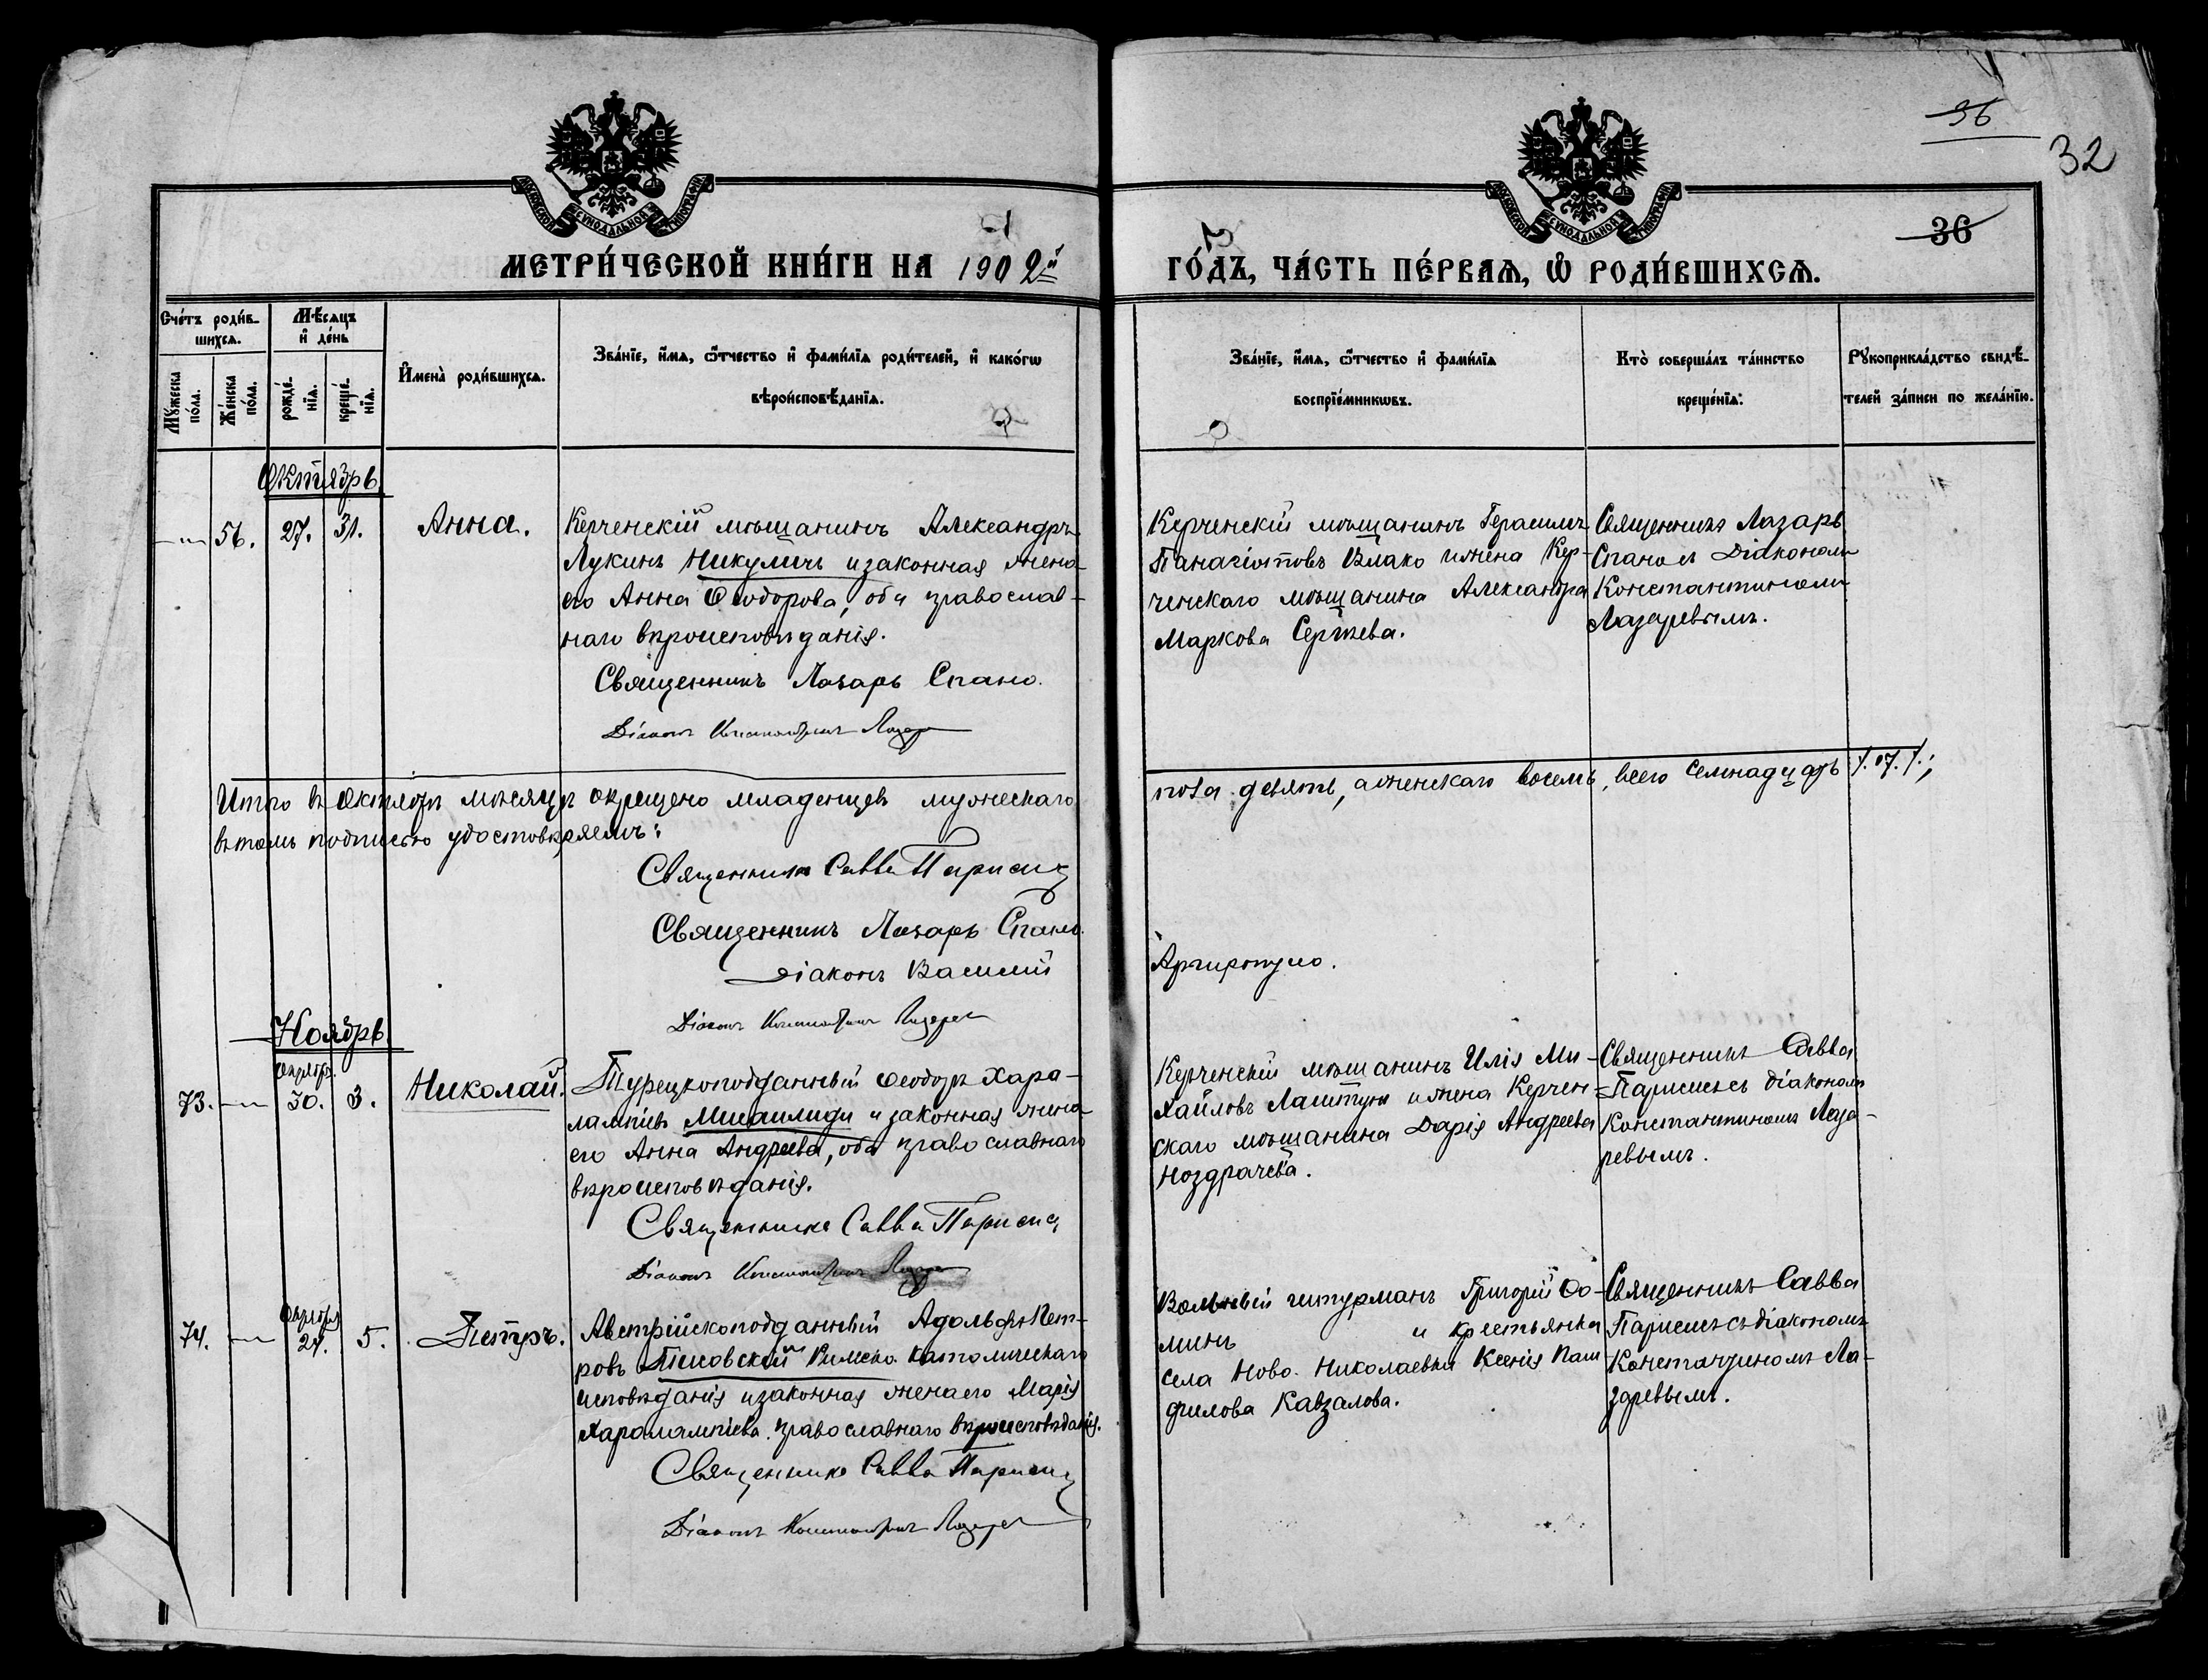 96
32
36
МОСКОВСКОЙ СѴНОДАЛЬНОЙ ТИПОГРАФІИ
МОСКОВСКОЙ СѴНОДАЛЬНОЙ ТИПОГРАФІИ
МЕТРИ́ЧЕСКОЙ КНИ́ГИ НА 1902й
ГО́ДЪ, ЧА́СТЬ ПЕ́РВАѦ, Ѡ҆ РОДИ́ВШИХСѦ.
Сче́тъ роди́в-
шихсѧ.
Мѣ́сѧцъ
и҆ де́нь
Мꙋ́жеска
по́ла.
Же́нска
по́ла.
рожде́-
нїѧ.
креще́-
нїѧ.
И҆мена̀ роди́вшихсѧ.
Зва́нїе, и҆́мѧ, ѻ҆́тчество и҆ фами́лїѧ роди́телей, и҆ како́гѡ
вѣроисповѣ́данїѧ.
Зва́нїе, и҆́мѧ, ѻ҆́тчество и҆ фами́лїѧ
воспрїе́мникѡвъ.
Кто̀ соверша́лъ та́инство
креще́нїѧ:
Рꙋкоприкла́дство свидѣ́-
телей за́писи по жела́нїю.
Октябрь
56. 27. 31. Анна.
Керченскій мѣщанинъ Александръ
Лукинъ Никуличъ и законная жена
его Анна Ѳеодорова, оба православ-
наго вѣроисповѣданія.
Священникъ Лазарь Спано.
Діаконъ Константинъ Лазарев
Керченскій мѣщанинъ Герасимъ
Панагіотовъ Влахо и жена Кер-
ченскаго мѣщанина Александра
Маркова Сергѣева.
Священникъ Лазарь
Спано съ Діакономъ
Константиномъ
Лазаревымъ.
Итого въ Октябрѣ мѣсяцѣ окрещено младенцевъ мужескаго
пола девять, а женскаго восемь, всего семнадцать /.17./;
въ томъ подписью удостовѣряемъ:
Священникъ Савва Парисис
Священникъ Лазарь Спано.
Діаконъ Василій
Аргиропуло.
Діаконъ Константинъ Лазарев
Ноябрь
73. Октябр. 30. 3. Николай.
Турецкоподданный Ѳеодоръ Хара-
лампіевъ Михаилиди и законная жена
его Анна Андреева, оба православнаго
вѣроисповѣданія.
Священникъ Савва Парисис
Діаконъ Константинъ Лазарев
Керченскій мѣщанинъ Илія Ми-
хайловъ и жена Керчен-
скаго мѣщанина Дарія Андреева
Ноздрачева.
Священникъ Савва
Парисисъ съ діакономъ
Константиномъ Лаза-
ревымъ.
74. Октября 27. 5. Петръ.
Австрійскоподданный Адольфъ Пет-
ровъ Римско-католическаго
исповѣданія и законная жена его Марія
Харалампіева православнаго вѣроисповѣданія.
Священникъ Савва Парисис
Діаконъ Константинъ Лазарев
Вольный штурманъ Григорій Ѳо-
минъ и крестьянка
села Ново-Николаевки Ксенія Пам-
филова Кавзалова.
Священникъ Савва
Парисисъ съ діакономъ
Константиномъ Ла-
заревымъ.